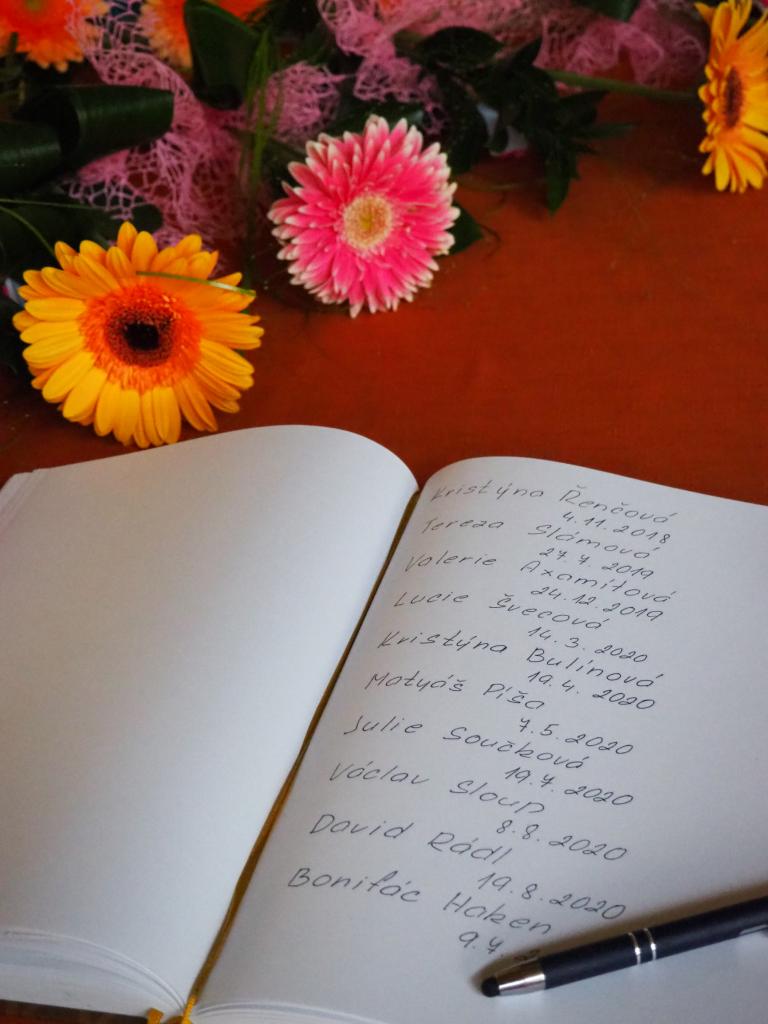 Kristýna Řenčová
4.11.2018
Tereza Slámová
27.7.2019
Valerie Axamitová
24.12.2019
Lucie Švecová
14.3.2020
Kristýna Bulínová
19.4.2020
Matyáš Píša
7.5.2020
Julie Součková
19.7.2020
Václav Sloup
8.8.2020
David Rádl
19.8.2020
Bonifác Haken
9.7.